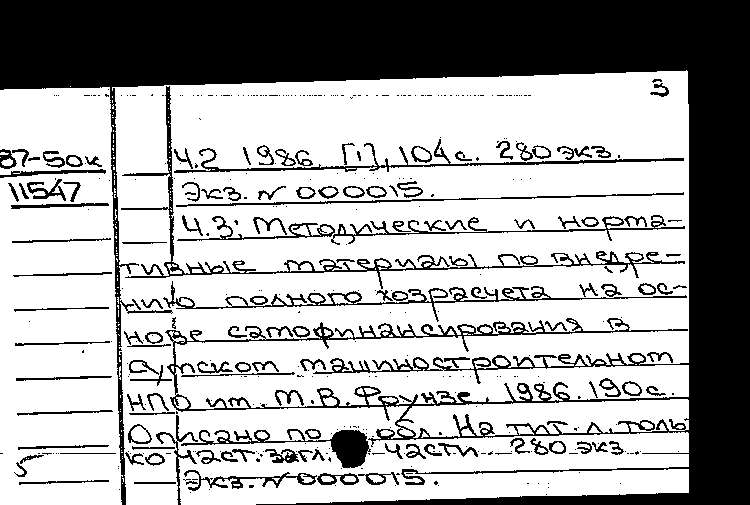 3
87-50к
11547
Ч.2 1986. [1], 104 с. 280 экз.
Экз. № 000015.
Ч.3: Методические и норма-
тивные материалы по внедре-
нию полного хозрасчета на ос-
нове самофинансирования в
Сумском машиностроительном
НПО им. М.В. Фрунзе. 1986. 190 с.
Описано по обл. На тит. л. толь
ко част. загл. части. 280 экз.
Экз. № 000015.
5